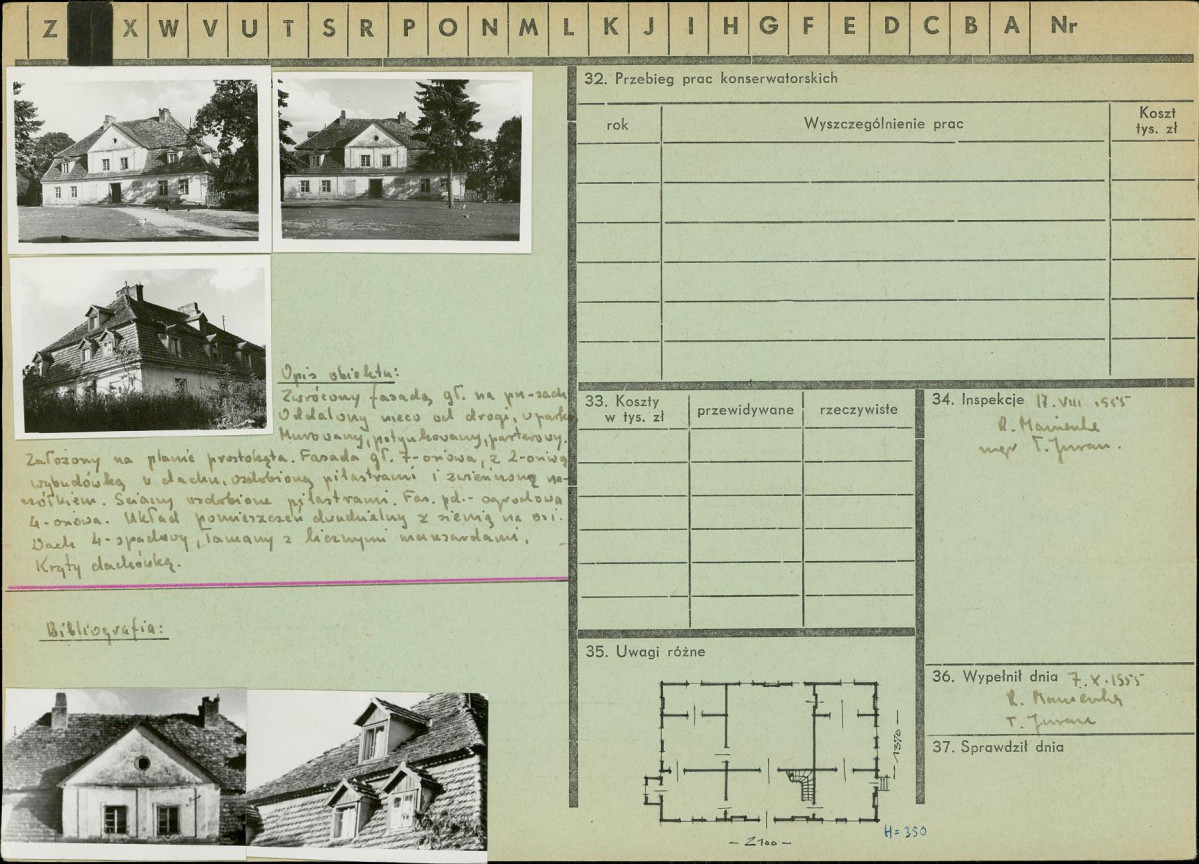 Z X W V U T S R P O N M L K J I H G F E D C B A Nr
32. Przebieg prac konserwatorskich
rok Wyszczególnienie prac Koszt tys. zł
Opis obiektu:
Zwrócony fasadą gł. na pn-zach
Oddalony nieco od drogi, w parku
Murowany, potynkowany, parterowy.
Założony na planie prostokąta. Fasada gł. 7-oniowa, z 2-oniwą
wybudówką w dachu, ozdobioną pilastrami i zwieńczoną na-
czółkiem. Ściany ozdobione pilastrami. Fas. pd.- ogrodowa
4-oniowa. Układ pomieszczeń dwudzielny z sienią na osi.
Dach 4-spadowy, łamany z licznymi mansardami,
Kryty dachówką.
Bibliografia:
33. Koszty w tys. zł przewidywane rzeczywiste
34. Inspekcje 17.VIII 1955
R.
mgr T.
35. Uwagi różne
1370
2100
H=350
36. Wypełnił dnia 7.X.1955
R.
T.
37. Sprawdził dnia